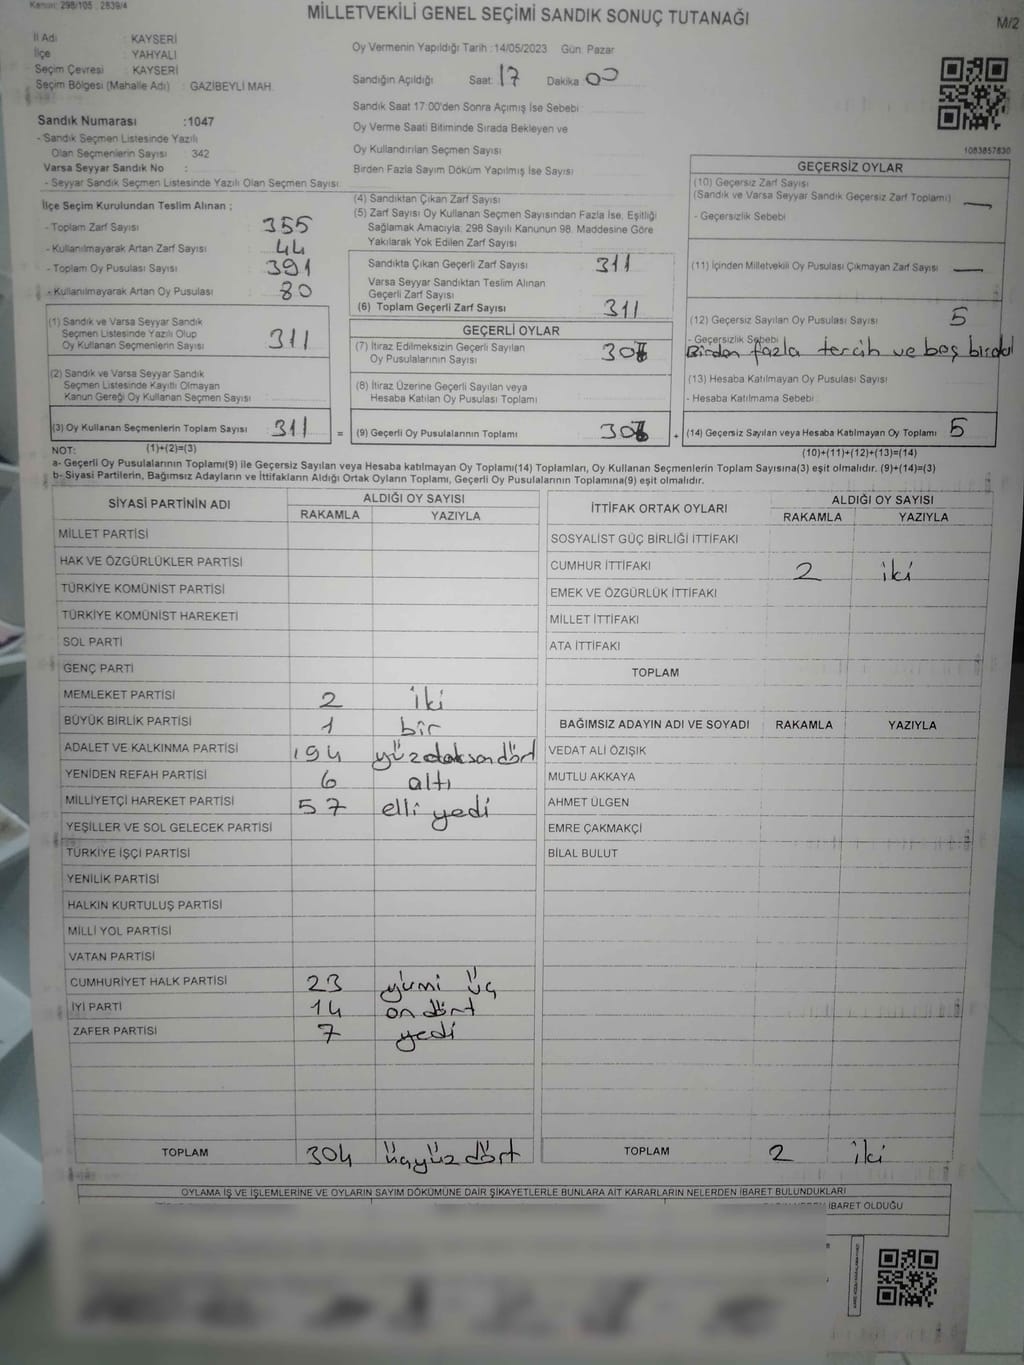 Kanun: 298/105 , 2839/4
MİLLETVEKİLİ GENEL SEÇİMİ SANDIK SONUÇ TUTANAĞI
M/2
İl Adı : KAYSERİ
İlçe : YAHYALI
Seçim Çevresi : KAYSERİ
Seçim Bölgesi (Mahalle Adı) : GAZİBEYLİ MAH.
Oy Vermenin Yapıldığı Tarih :14/05/2023 Gün: Pazar
Sandığın Açıldığı Saat: 17 Dakika 00
Sandık Saat 17:00'den Sonra Açımış İse Sebebi
Oy Verme Saati Bitiminde Sırada Bekleyen ve
Oy Kullandırılan Seçmen Sayısı
Birden Fazla Sayım Döküm Yapılmış İse Sayısı
1083857830
Sandık Numarası :1047
- Sandık Seçmen Listesinde Yazılı
Olan Seçmenlerin Sayısı : 342
Varsa Seyyar Sandık No :
- Seyyar Sandık Seçmen Listesinde Yazılı Olan Seçmen Sayısı:
İlçe Seçim Kurulundan Teslim Alınan ;
- Toplam Zarf Sayısı 355
- Kullanılmayarak Artan Zarf Sayısı 44
- Toplam Oy Pusulası Sayısı 391
- Kullanılmayarak Artan Oy Pusulası 80
(1) Sandık ve Varsa Seyyar Sandık
Seçmen Listesinde Yazılı Olup
Oy Kullanan Seçmenlerin Sayısı 311
(2) Sandık ve Varsa Seyyar Sandık
Seçmen Listesinde Kayıtlı Olmayan
Kanun Gereği Oy Kullanan Seçmen Sayısı
(3) Oy Kullanan Seçmenlerin Toplam Sayısı 311 =
(1)+(2)=(3)
(4) Sandıktan Çıkan Zarf Sayısı
(5) Zarf Sayısı Oy Kullanan Seçmen Sayısından Fazla İse, Eşitliği
Sağlamak Amacıyla; 298 Sayılı Kanunun 98. Maddesine Göre
Yakılarak Yok Edilen Zarf Sayısı
Sandıkta Çıkan Geçerli Zarf Sayısı 311
Varsa Seyyar Sandıktan Teslim Alınan
Geçerli Zarf Sayısı
(6) Toplam Geçerli Zarf Sayısı 311
GEÇERLİ OYLAR
(7) İtiraz Edilmeksizin Geçerli Sayılan
Oy Pusulalarının Sayısı 306
(8) İtiraz Üzerine Geçerli Sayılan veya
Hesaba Katılan Oy Pusulası Toplamı
(9) Geçerli Oy Pusulalarının Toplamı 306 +
GEÇERSİZ OYLAR
(10) Geçersiz Zarf Sayısı
(Sandık ve Varsa Seyyar Sandık Geçersiz Zarf Toplamı) —
- Geçersizlik Sebebi
(11) İçinden Milletvekili Oy Pusulası Çıkmayan Zarf Sayısı —
(12) Geçersiz Sayılan Oy Pusulası Sayısı 5
- Geçersizlik Sebebi
Birden fazla tercih ve boş
(13) Hesaba Katılmayan Oy Pusulası Sayısı
- Hesaba Katılmama Sebebi
(14) Geçersiz Sayılan veya Hesaba Katılmayan Oy Toplamı 5
(10)+(11)+(12)+(13)=(14)
NOT:
a- Geçerli Oy Pusulalarının Toplamı(9) ile Geçersiz Sayılan veya Hesaba katılmayan Oy Toplamı(14) Toplamları, Oy Kullanan Seçmenlerin Toplam Sayısına(3) eşit olmalıdır. (9)+(14)=(3)
b- Siyasi Partilerin, Bağımsız Adayların ve İttifakların Aldığı Ortak Oyların Toplamı, Geçerli Oy Pusulalarının Toplamına(9) eşit olmalıdır.
SİYASİ PARTİNİN ADI
ALDIĞI OY SAYISI
RAKAMLA YAZIYLA
MİLLET PARTİSİ
HAK VE ÖZGÜRLÜKLER PARTİSİ
TÜRKİYE KOMÜNİST PARTİSİ
TÜRKİYE KOMÜNİST HAREKETİ
SOL PARTİ
GENÇ PARTİ
MEMLEKET PARTİSİ 2 iki
BÜYÜK BİRLİK PARTİSİ 1 bir
ADALET VE KALKINMA PARTİSİ 194 yüzdoksandört
YENİDEN REFAH PARTİSİ 6 altı
MİLLİYETÇİ HAREKET PARTİSİ 57 elli yedi
YEŞİLLER VE SOL GELECEK PARTİSİ
TÜRKİYE İŞÇİ PARTİSİ
YENİLİK PARTİSİ
HALKIN KURTULUŞ PARTİSİ
MİLLİ YOL PARTİSİ
VATAN PARTİSİ
CUMHURİYET HALK PARTİSİ 23 yirmi üç
İYİ PARTİ 14 on dört
ZAFER PARTİSİ 7 yedi
TOPLAM 304 üçyüz dört
İTTİFAK ORTAK OYLARI
ALDIĞI OY SAYISI
RAKAMLA YAZIYLA
SOSYALİST GÜÇ BİRLİĞİ İTTİFAKI
CUMHUR İTTİFAKI 2 iki
EMEK VE ÖZGÜRLÜK İTTİFAKI
MİLLET İTTİFAKI
ATA İTTİFAKI
TOPLAM
BAĞIMSIZ ADAYIN ADI VE SOYADI RAKAMLA YAZIYLA
VEDAT ALİ ÖZIŞIK
MUTLU AKKAYA
AHMET ÜLGEN
EMRE ÇAKMAKÇİ
BİLAL BULUT
TOPLAM 2 iki
OYLAMA İŞ VE İŞLEMLERİNE VE OYLARIN SAYIM DÖKÜMÜNE DAİR ŞİKAYETLERLE BUNLARA AİT KARARLARIN NELERDEN İBARET BULUNDUKLARI
İBARET OLDUĞU